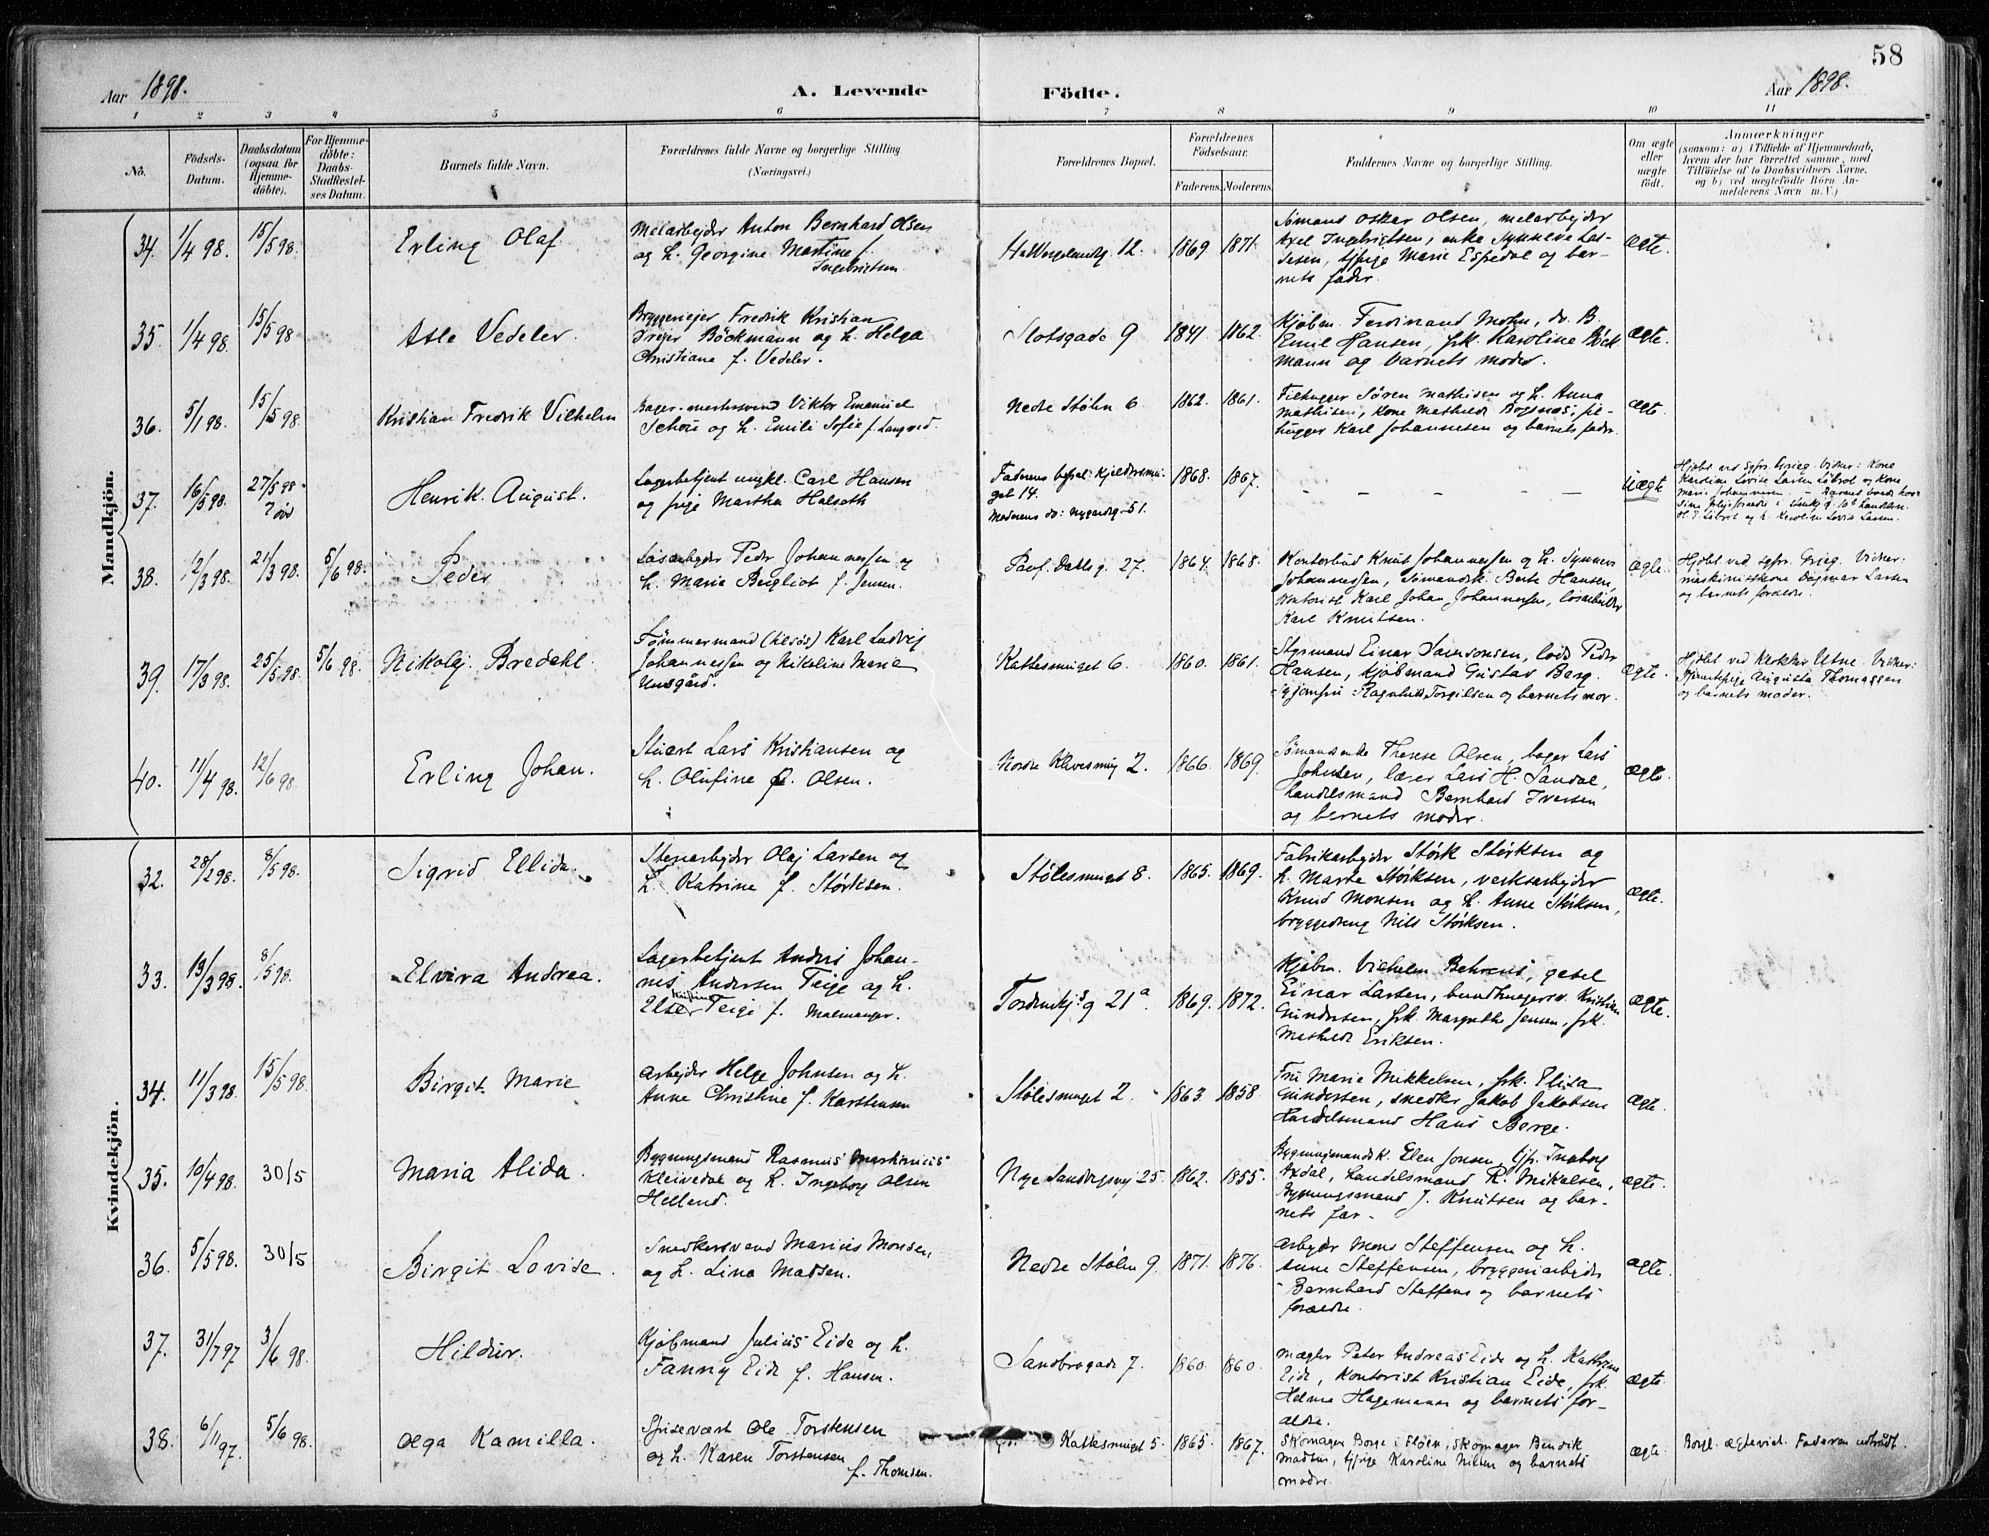 58
Aar 1898. A. Levende Födte. Aar 1898.
1 2 3 4 5 6 7 8 9 10 11
No. Födsels-Datum. Daabsdatum (ogsaa for Hjemmedöbte). For Hjemmedöbte: Daabs-Stadfæstelses Datum. Barnets fulde Navn. Forældrenes fulde Navne og borgerlige Stilling (Næringsvei.) Forældrenes Bopæl. Forældrenes Födselsaar. Faderens. Moderens. Faddernes Navne og borgerlige Stilling. Om ægte eller uægte födt. Anmærkninger (saasom: a) i Tilfælde af Hjemmedaab, hvem der har forrettet samme, med Tilföielse af to Daabsvidners Navne, og b) ved uægtefödte Börn Anmelderens Navn m. V.)
Mandkjön.
34. 1/4 98. 15/5 98. Erling Olaf.
Melarbejder Anton Bernhard Olsen
og h. Georgine Martine f.
Ingebrigtsen
H. Wergelandsg 12. 1869 1871.
Sömand Oskar Olsen, melarbejder
Axel Ingebrigtsen, enke Synneve Las-
sesen, tjpige Marie Espedal og bar-
nets fader.
ægte.
35. 1/4 98. 15/5 98 Asle Vedeler.
Bryggeriejer Fredrik Kristian
Böckmann og h. Helga
Christiane f. Vedeler.
Slotsgade 9 1841. 1862.
Kjöbm. Ferdinand Mohn, do B.
Emil Hansen, frk. Karoline Böck
mann og barnets moder.
ægte.
36. 5/1 98. 15/5 98. Kristian Fredrik Vilhelm
Bager-mestersvend Viktor Emanuel
Schou og h. Emili Sofie f. Langvad.
Nedre Stöln 6. 1862. 1861.
Filhugger Sören Mathisen og h. Anna
Mathisen, Kone Mathilde Bogsnæs, fil-
hugger Karl Johannesen og barnets fader.
ægte.
37. 16/5 98. 27/5 98. Henrik August.
Lagerbetjent ungkl. Carl Hansen
og pige Martha Halseth
Faderens bopæl: Kjeldersmu-
get 14.
Moderens do: Nygaardsg. 51.
1868. 1867. — — — —
uægte
Hjdöbt ved sgpr. Grieg. Vidner: Kone
Karoline Lovise Larsen Librot og Kone
Marie Johannesen
38. 12/3 98. 21/3 98. 5/6 98. Peder
Løsarbejder Peder Johannessen og
h. Marie Bergliot f. Jensen.
Prof. Dahls g. 27. 1864. 1868.
Kontorbud Knut Johannessen og h. Synneve
Johannessen, Sömandsk. Berte Hansen,
Kontorist Karl Johan Johannessen, lösarbeider
Karl Knutsen.
ægte.
Hjdöbt ved sgpr. Grieg. Vidner:
maskinistkone Dagmar Larsen
og barnets forældre.
39. 17/3 98. 25/5 98. 5/6 98. Nikolaj Bredahl.
Tömmermand (tilsøs) Karl Ludvig
Johannessen og Nikoline Marie
Unsgård.
Kattesmuget 6. 1860. 1861.
Styrmand Einar Samsonsen, lods Peder
Hansen, Kjöbmand Gustav Berg.
syjomfru Ragnhild Torgilsen og barnets mor.
ægte.
Hjdöbt ved klokker Utne. Vidner:
tjenestepige Augusta Thomassen
og barnets moder.
40. 11/4 98. 12/6 98. Erling Johan.
Stuert Lars Kristiansen og
h. Olufine f. Olsen.
Nordre Klavesmug 2. 1866. 1869.
Sömandsenke Therese Olsen, bager Lars
Johnsen, lærer Lars H. Sandal,
handelsmand Bernhard Iversen
og barnets moder.
ægte.
Kvindekjön.
32. 28/2 98. 8/5 98. Sigrid Ellida.
Stenarbejder Olaj Larsen og
h. Katrine f. Störksen.
Stölesmuget 8. 1865. 1869.
Fabrikarbejder Störk Störksen og
h. Marte Störksen, verksarbejder
Knud Monsen og h. Anne Störksen,
bryggedreng Nils Störksen.
ægte.
33. 13/3 98. 8/5 98. Elvira Andrea.
Lagerbetjent Anders Johan-
nes Andersen Teige og h.
Else Teige f. Malmanger.
Tordenskj's g 21a 1869. 1872.
Kjöbm. Vilhelm Behrens, gesel
Einar Larsen, bundtmagersv. Kristian
Gundersen, frk. Margrethe Jensen, frk.
Mathilde Eriksen.
ægte.
34. 11/3 98. 15/5 98. Birgit Marie
Arbejder Helge Johnsen og h.
Anne Christine f. Karstensen
Stölesmuget 2. 1863 1858.
Fru Marie Mikkelsen, frk. Elisa
Gundersen, snedker Jakob Jakobsen
Handelsmand Hans Berge.
ægte.
35. 10/4 98. 30/5 Maria Alida.
Bygningsmand Rasmus Martinius
Kleivedal og h. Ingeborg Olsen
Helland.
Nye Sandvigsvej 25. 1862. 1855.
Bygningsmandsk. Elen Jonsen, tjp. Ingeborg
Axdal, Handelsmand R. Mikalsen,
Bygningsmand J. Knutsen og bar-
nets far.
ægte.
36. 5/5 98. 30/5 Birgit Lovise.
Snedkersvend Marius Monsen
og h. Lina Madsen.
Nedre Stöln 9. 1871. 1876.
Arbejder Mons Steffensen og h.
Anne Steffensen, bryggeriarbejder
Bernhard Steffens og barnets
forældre.
ægte.
37. 31/7 97 3/6 98. Hildur.
Kjöbmand Julius Eide og h.
Fanny Eide f. Hansen.
Sandbrogade 7. 1860. 1860.
Mægler Peter Andreas Eide og h. Kathrine
Eide, Kontorist Kristian Eide, frk.
Helma Hagemann og barnets for-
ældre.
ægte.
38. 6/11 97. 5/6 98. Olga Kamilla.
Spisevært Ole Torstensen
og h. Karen Torstensen
f. Thomsen.
Kattesmuget 5. 1865. 1867.
Skomager Borge i Flöen, skomager Bendik
Madsen, tjpige Karoline Nilsen og barnets
moder.
ægte.
Borgl. ægteviet. Faderen udtrådt.